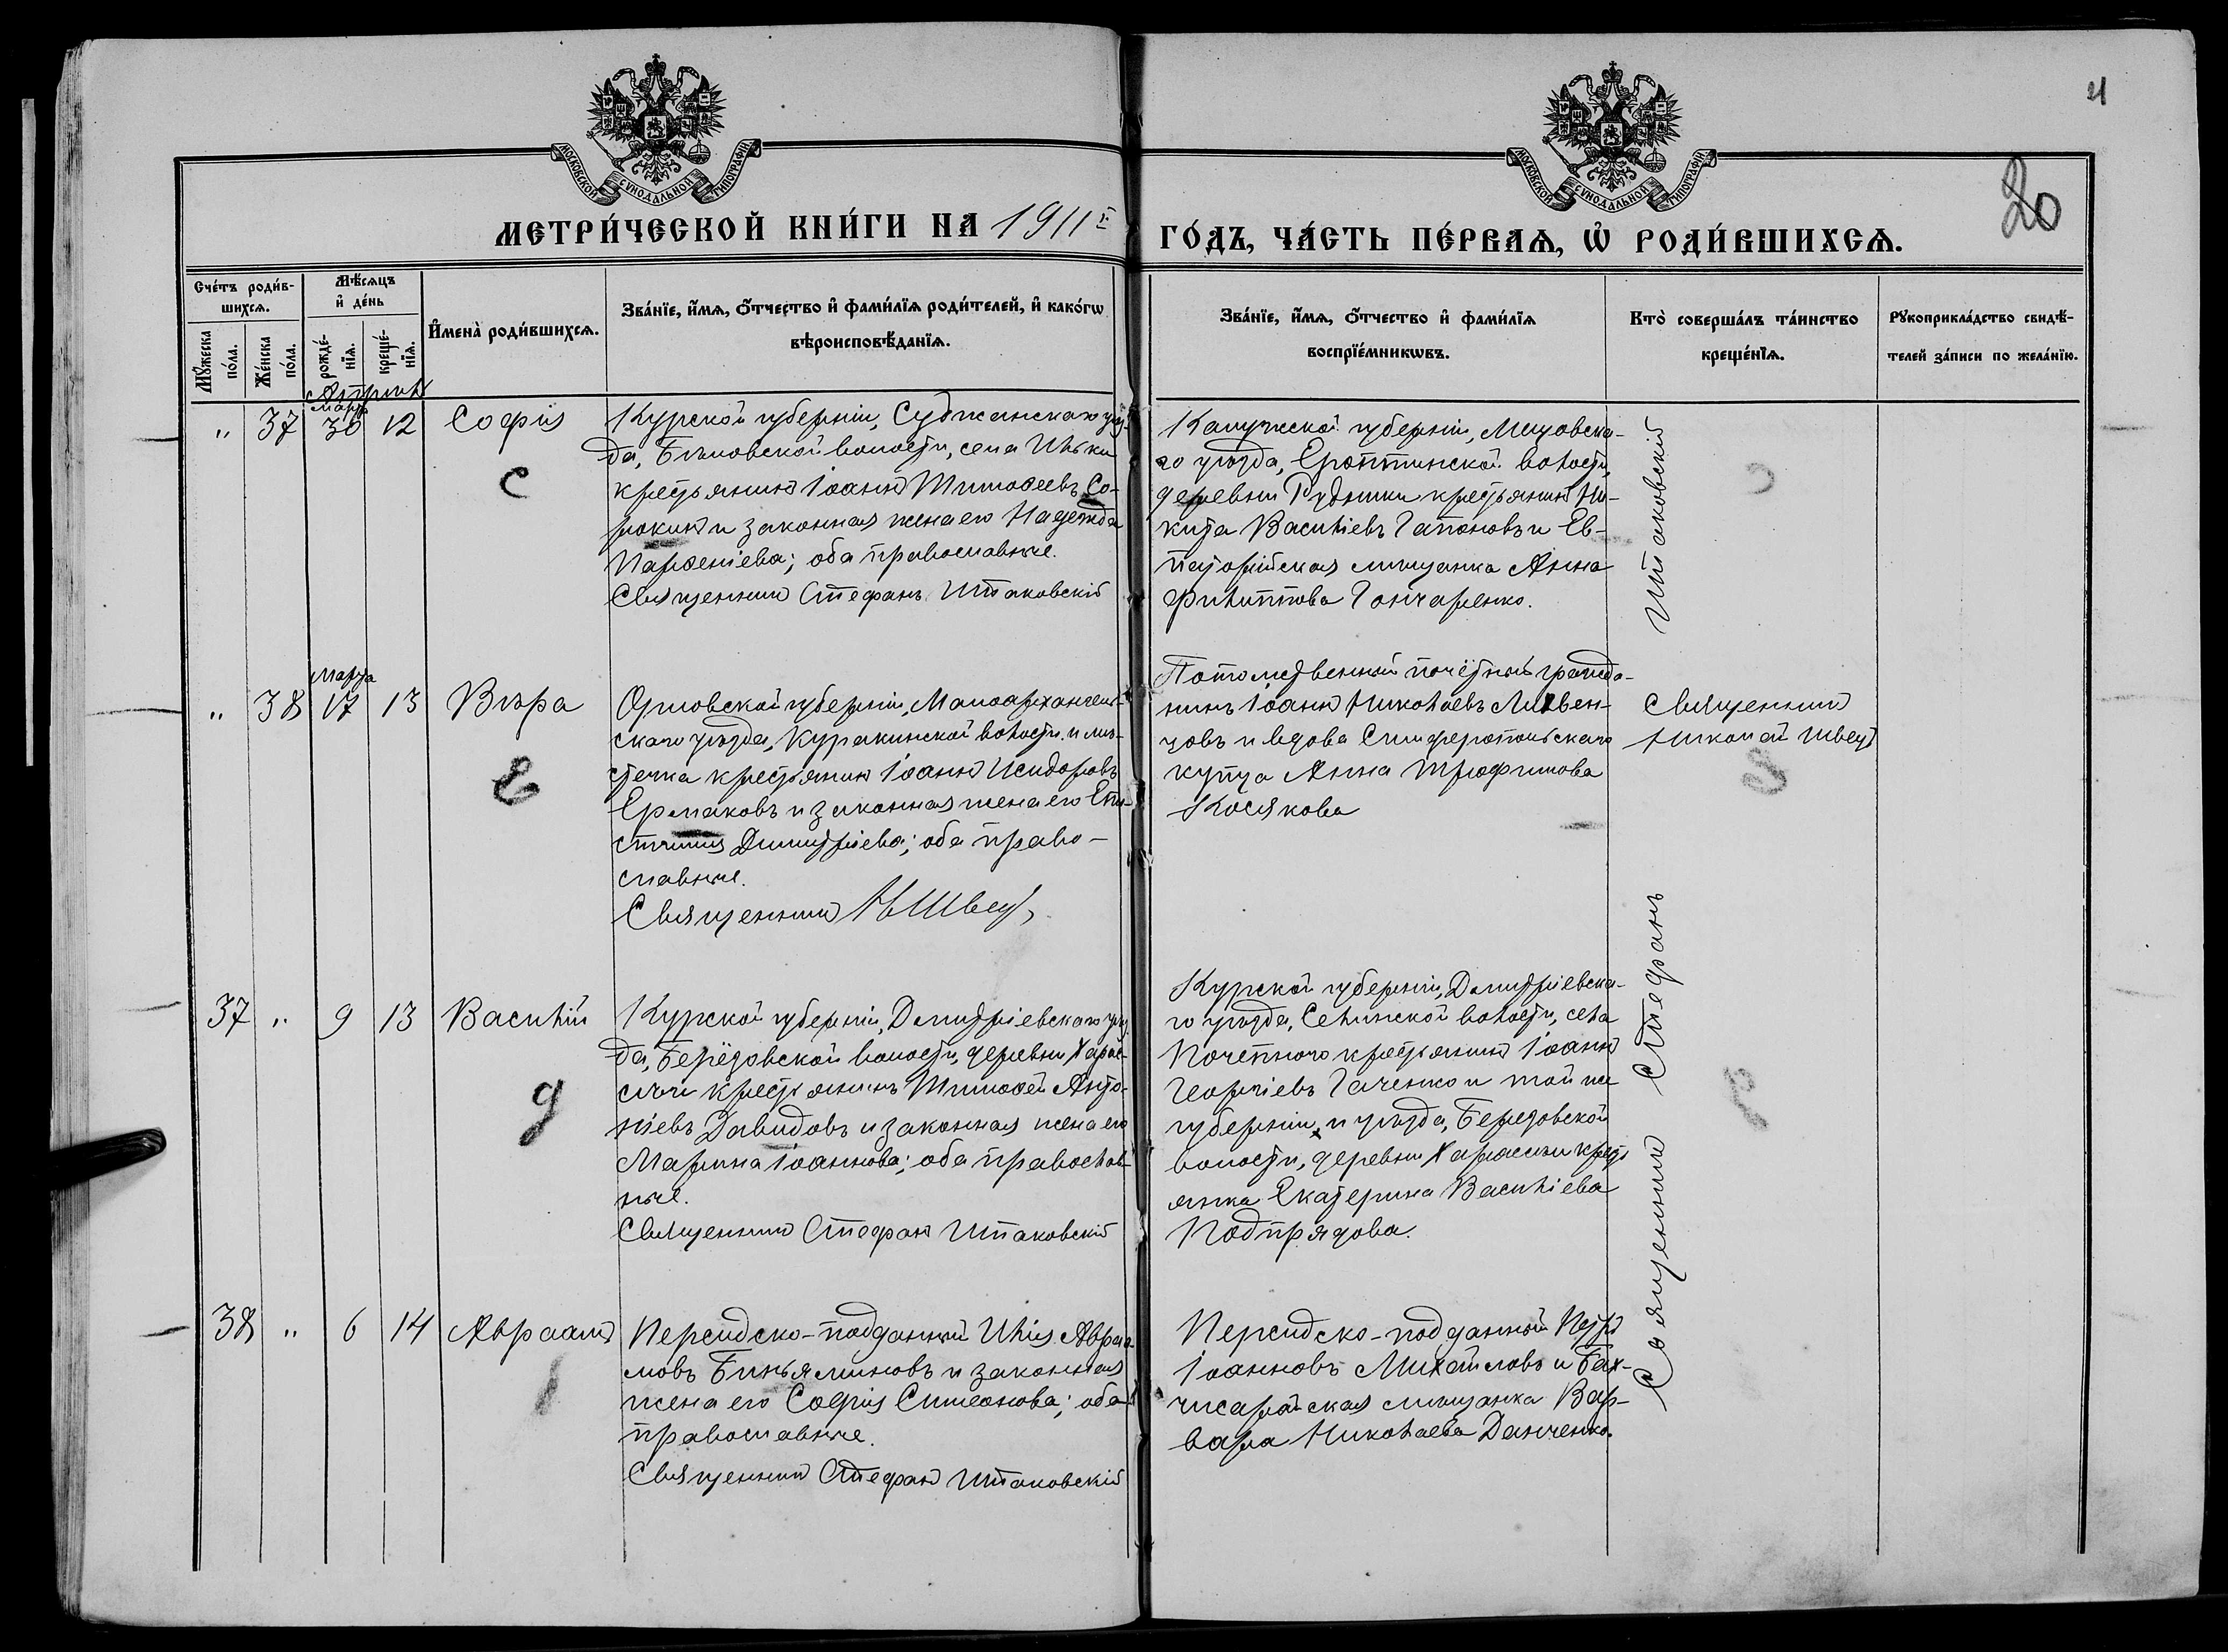 21
20
МОСКОВСКОЙ СѴНОДАЛЬНОЙ ТИПОГРАФІИ
МОСКОВСКОЙ СѴНОДАЛЬНОЙ ТИПОГРАФІИ
МЕТРИ́ЧЕСКОЙ КНИ́ГИ НА 1911 й
ГО́ДЪ, ЧА́СТЬ ПЕ́РВАѦ, Ѡ҆ РОДИ́ВШИХСѦ.
Сче́тъ роди́в-
шихсѧ.
Мꙋ́жеска по́ла.
Же́нска по́ла.
Мѣ́сѧцъ
и҆ де́нь
рожде́-
нїѧ.
креще́-
нїѧ.
И҆мена̀ роди́вшихсѧ.
Зва́нїе, и҆́мѧ, ѻ҆́тчество и҆ фами́лїѧ роди́телей, и҆ како́гѡ
вѣроисповѣ́данїѧ.
Зва́нїе, и҆́мѧ, ѻ҆́тчество и҆ фами́лїѧ
воспрїе́мникѡвъ.
Кто̀ соверша́лъ та́инство
креще́нїѧ.
Рꙋкоприкла́дство свидѣ́-
телей за́писи по жела́нїю.
Апрѣль
Март
" 37 30 12 Софія
С
Курской губерніи, Суджанскаго уѣз-
да, Бѣловской волости, села Ильки
крестьянинъ Іоаннъ Тимоѳеевъ Со-
рокинъ и законная жена его Надежда
Парѳеніева; оба православные.
Священникъ Стефанъ Штаковскій
Калужской губерніи, Мещовска-
го уѣзда,
волости,
деревни Рудники крестьянинъ Ни-
кита Василіевъ Гапоновъ и Ев-
паторійская мѣщанка Анна
Филиппова Гончаренко.
Марта
" 38 17 13 Вѣра
Е
Орловской губерніи, Малоархангель-
скаго уѣзда, Куракинской волости и мѣ-
стечка крестьянинъ Іоаннъ Исидоровъ
Ермаковъ и законная жена его Епи-
стимія Димитріева; оба право-
славные.
Священникъ Н Швецъ
Потомственный почётный гражда-
нинъ Іоаннъ Николаевъ Литвен-
цовъ и вдова Симферопольскаго
купца Анна Трофимова
Косякова
Священникъ
Николай Швецъ
37 " 9 13 Василій
Д
Курской губерніи, Димитріевскаго уѣз-
да, Берёзовской волости, деревни Харас-
сеи крестьянинъ Тимоѳей Анто-
ніевъ Давидовъ и законная жена его
Марина Іоаннова; оба православ-
ные.
Священникъ Стефанъ Штаковскій
Курской губерніи, Димитріевска-
го уѣзда, Селинской волости, села
Почепного крестьянинъ Іоаннъ
Георгіевъ Гаченко и той же
губерніи и уѣзда, Березовской
волости, деревни
крестъ
янка Екатерина Василіева
Подпрядова.
38 " 6 14 Авраамъ
Персидско-подданный Илія Авраа-
мовъ Биньяминовъ и законная
жена его Софія Симеонова; оба
православные.
Священникъ Стефанъ Штаковскій
Персидско-подданный Петръ
Іоанновъ Михайловъ и Бах-
чисарайская мѣщанка Вар-
вара Николаева Данченко.
Священникъ Стефанъ Штаковскій